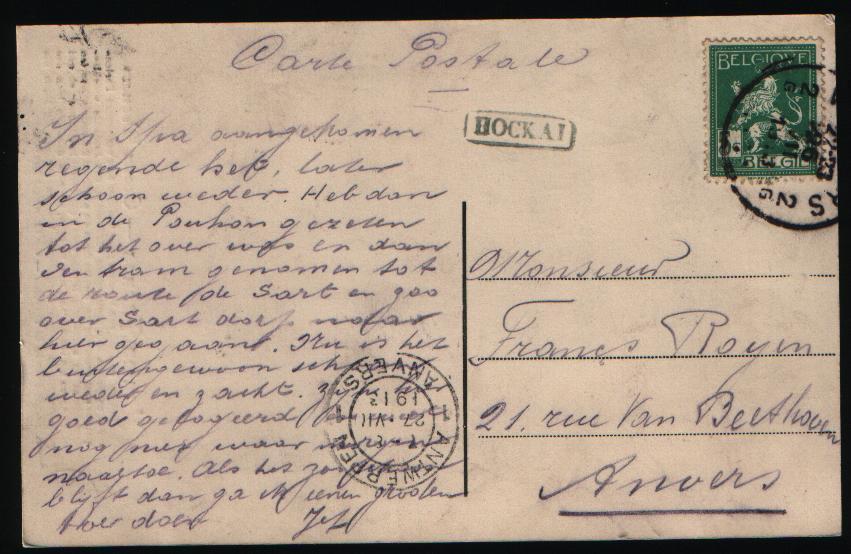 Carte Postale
BELGIQUE
BELGIË
HOCKAI
In Spa aangekomen
regende het, later
schoon weder. Heb dan
in de Pouhon gezeten
tot het over was en dan
den tram genomen tot
de route de Sart en zoo
over Sart dorp naar
hier gegaan. Nu is het
buitengewoon schoon
weder en zacht. Zijn
goed gelogeerd
nog niet waar
naartoe. Als het zoo
blijft dan ga ik eenen grooten
toer doen Jef
ANTWERPEN 1 ANVERS 1
27 VII
1913
Monsieur
Franç̧s Royen
21. rue Van Beethoven
Anvers